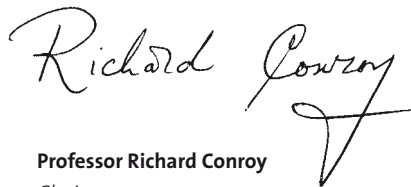 Richard Conroy
Professor Richard Conroy